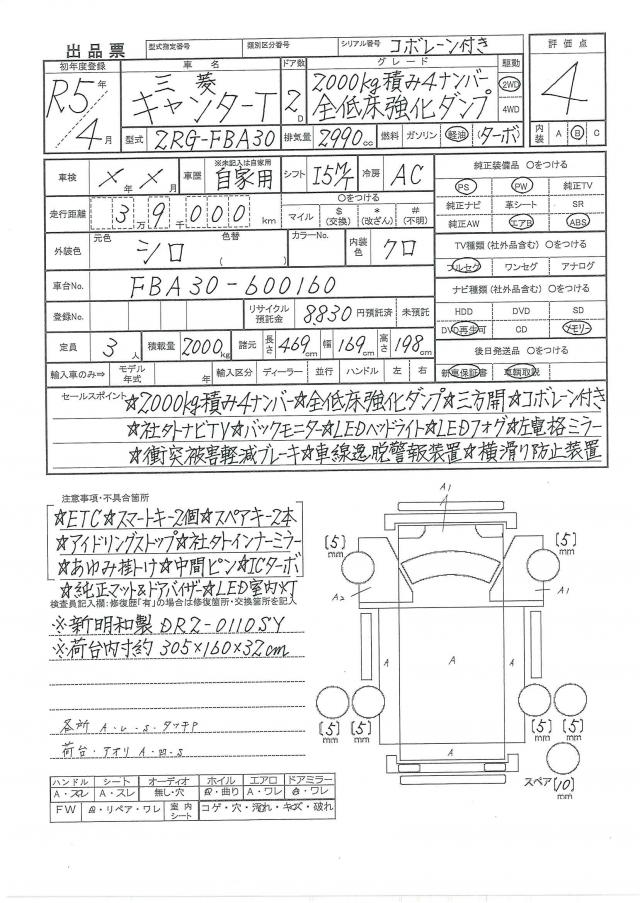 出品票 型式指定番号 類別区分番号 シリアル番号 コボレーン付き 評価点
初年度登録 車名 ドア数 グレード 駆動
R5年/4月 三菱 キャンターT 2D 2000kg積み4ナンバー 2WD 4
全低床強化ダンプ 4WD
型式 2RG-FBA30 排気量 2990cc 燃料 ガソリン 軽油 (ターボ) 内装 A B C
車検 ×年×月 車歴 ※未記入は自家用 自家用 シフト I5M/T 冷房 AC 純正装備品 ○をつける
PS PW 純正TV
走行距離 3万9千000km ○をつける マイル $(交換) *(改ざん) #(不明) 純正ナビ 革シート SR
純正AW エアB ABS
外装色 元色 シロ 色替 ( ) カラーNo. 内装色 クロ TV種類(社外品含む) ○をつける
フルセグ ワンセグ アナログ
車台No. FBA30-600160 ナビ種類(社外品含む) ○をつける
登録No. リサイクル預託金 8830円預託済 未預託 HDD DVD SD
DVD再生可 CD メモリー
定員 3人 積載量 2000kg 諸元 長さ469cm 幅169cm 高さ198cm 後日発送品 ○をつける
輸入車のみ⇒ モデル年式 年 輸入区分 ディーラー 並行 ハンドル 左 右 新車保証書 車輌取説
セールスポイント ☆2000kg積み4ナンバー☆全低床強化ダンプ☆三方開☆コボレーン付き
☆社外ナビTV☆バックモニター☆LEDヘッドライト☆LEDフォグ☆左電格ミラー
☆衝突被害軽減ブレーキ☆車線逸脱警報装置☆横滑り防止装置
注意事項・不具合箇所
☆ETC☆スマートキー2個☆スペアキー2本
☆アイドリングストップ☆社外インナーミラー
☆あゆみ掛け☆中間ピン☆ICターボ
☆純正マット&ドアバイザー☆LED室内灯
検査員記入欄:修復歴「有」の場合は修復箇所・交換箇所を記入
※新明和製 DR2-0110SY
※荷台内寸約 305×160×32cm
各所 A.U.S.タッチP
荷台・アオリ A.凹.S
ハンドル シート オーディオ ホイル エアロ ドアミラー
A・スレ A・スレ 無し・穴 ・曲り A・ワレ ・ワレ
FW ・リペア・ワレ 室内シート コゲ・穴・汚れ・キズ・破れ
A1
[5]mm [5]mm
A2 A1
A A A
A
[5]mm [5]mm [5]mm [5]mm
スペア[10]mm